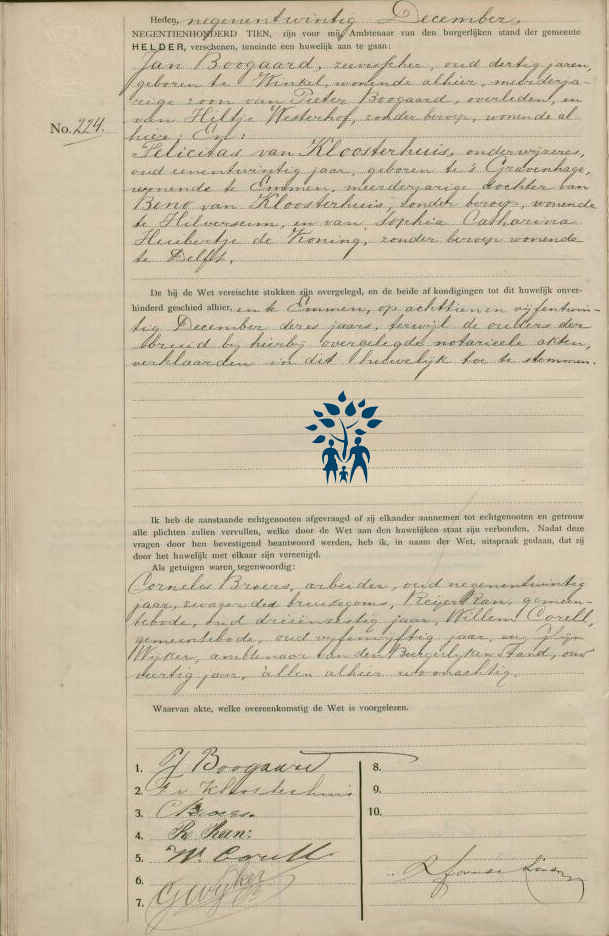 Heden, negenentwintig December,
NEGENTIENHONDERD TIEN, zijn voor mij Ambtenaar van den burgerlijken stand der gemeente
HELDER, verschenen, teneinde een huwelijk aan te gaan:
Jan Boogaard, zeevisscher, oud dertig jaren,
geboren te Winkel, wonende alhier, meerderja-
rige zoon van Pieter Boogaard, overleden, en
van Hiltje Westerhof, zonder beroep, wonende al
hier; En:
No. 224.
Felicitas van Kloosterhuis, onderwijzeres,
oud eenentwintig jaar, geboren te 's Gravenhage,
wonende te Emmen, meerderjarige dochter van
Beno van Kloosterhuis, zonder beroep, wonende
te Hilversum, en van Sophia Catharina
Huibertje de Koning, zonder beroep wonende
te Delft.
De bij de Wet vereischte stukken zijn overgelegd, en de beide afkondigingen tot dit huwelijk onver-
hinderd geschied alhier, en te Emmen, op achttien en vijfentwin-
tig December dezes jaars, terwijl de ouders der
bruid bij hierbij overgelegde notarieele akten,
verklaarden in dit huwelijk toe te stemmen.
Ik heb de aanstaande echtgenooten afgevraagd of zij elkander aannemen tot echtgenooten en getrouw
alle plichten zullen vervullen, welke door de Wet aan den huwelijken staat zijn verbonden. Nadat deze
vragen door hen bevestigend beantwoord werden, heb ik, in naam der Wet, uitspraak gedaan, dat zij
door het huwelijk met elkaar zijn vereenigd.
Als getuigen waren tegenwoordig:
Cornelis Broers, arbeider, oud negenentwintig
jaar, zwager des bruidegoms, Reijer Ran, gemeen-
tebode, oud drieënzestig jaar, Willem Corell,
gemeentebode, oud vijfenvijftig jaar, en Gerrit
Wijker, ambtenaar van den Burgerlijken Stand, oud
veertig jaar, allen alhier woonachtig.
Waarvan akte, welke overeenkomstig de Wet is voorgelezen.
1. J Boogaard
2. F v Kloosterhuis
3. C Broers.
4. R.
5. W. Corell
6.
7. G Wijker
8.
9.
10.